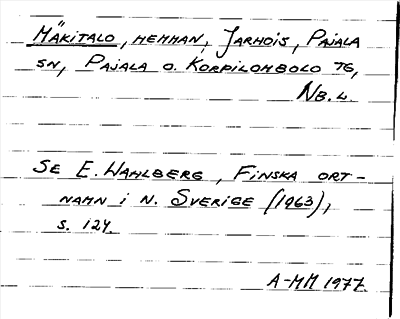 Mäkitalo, hemman, Jarhois, Pajala
sn, Pajala o. Korpilombolo ts,
Nb. l.
Se E. Wahlberg, Finska ort-
namn i n. Sverige (1963),
s. 124.
A-MM 1977.